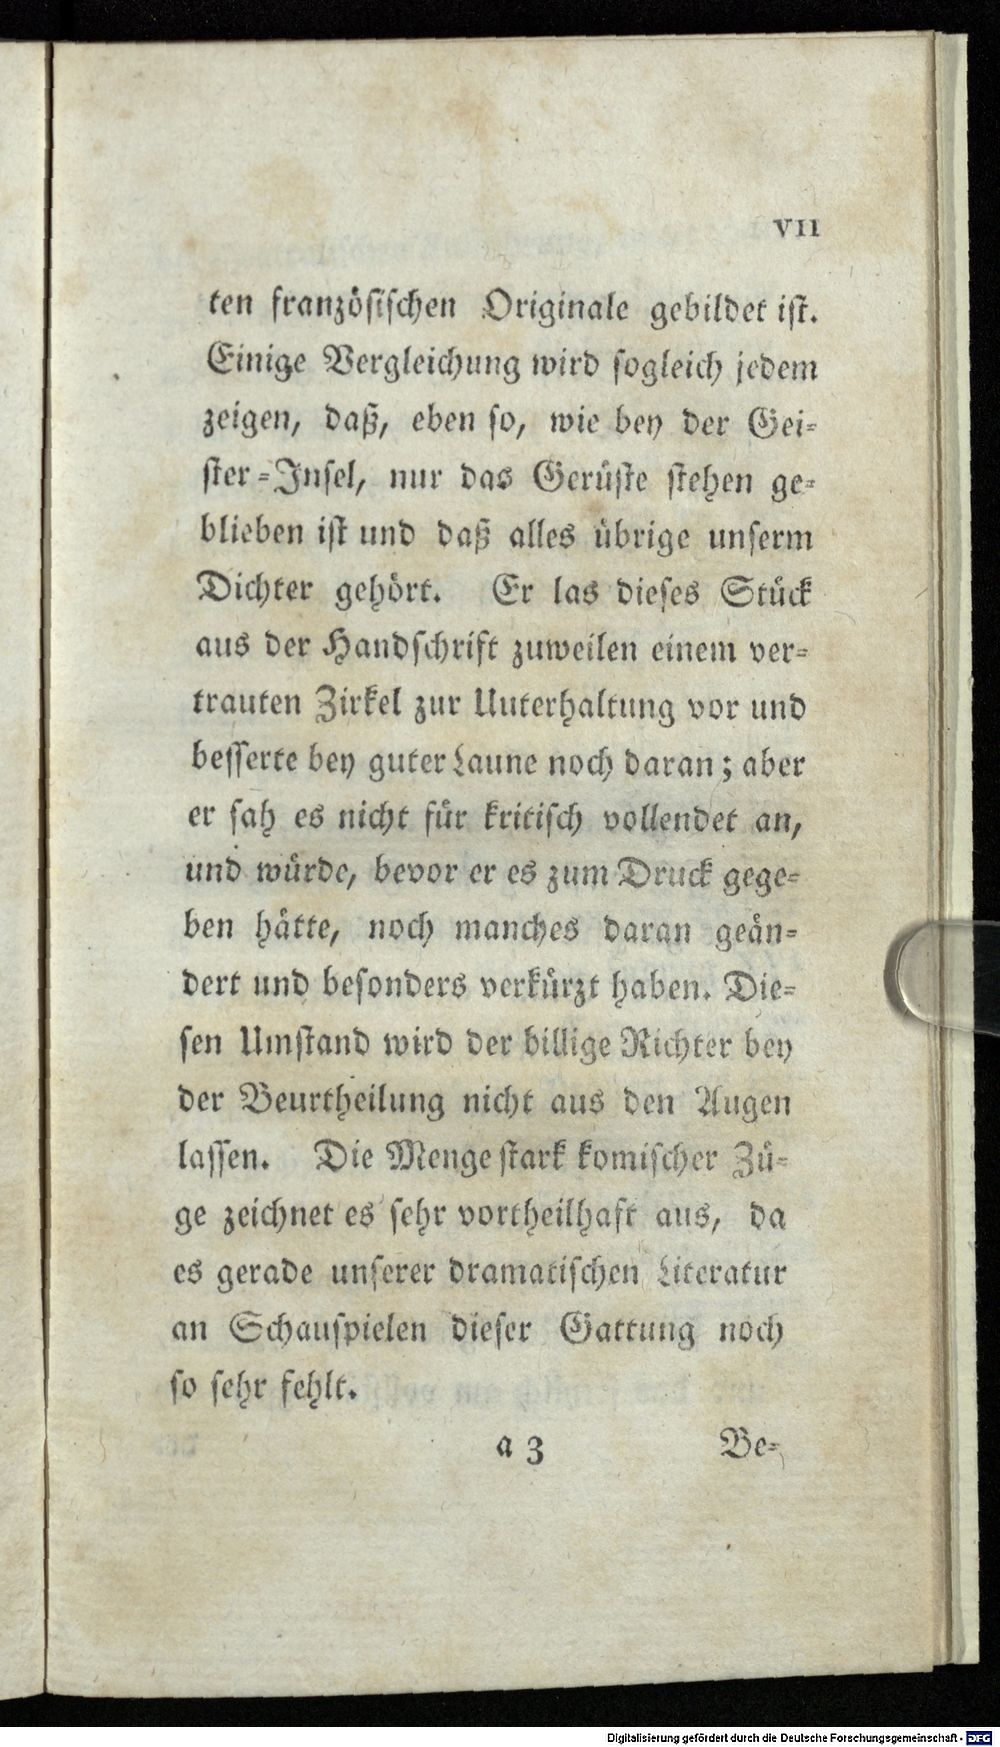 VII
ten französischen Originale gebildet ist.
Einige Vergleichung wird sogleich jedem
zeigen, daß, eben so, wie bey der Gei-
ster-Insel, nur das Gerüste stehen ge-
blieben ist und daß alles übrige unserm
Dichter gehört. Er las dieses Stück
aus der Handschrift zuweilen einem ver-
trauten Zirkel zur Unterhaltung vor und
besserte bey guter Laune noch daran; aber
er sah es nicht für kritisch vollendet an,
und würde, bevor er es zum Druck gege-
ben hätte, noch manches daran geän-
dert und besonders verkürzt haben. Die-
sen Umstand wird der billige Richter bey
der Beurtheilung nicht aus den Augen
lassen. Die Menge stark komischer Zü-
ge zeichnet es sehr vortheilhaft aus, da
es gerade unserer dramatischen Literatur
an Schauspielen dieser Gattung noch
so sehr fehlt.
a 3 Be-
Digitalisierung gefördert durch die Deutsche Forschungsgemeinschaft - DFG